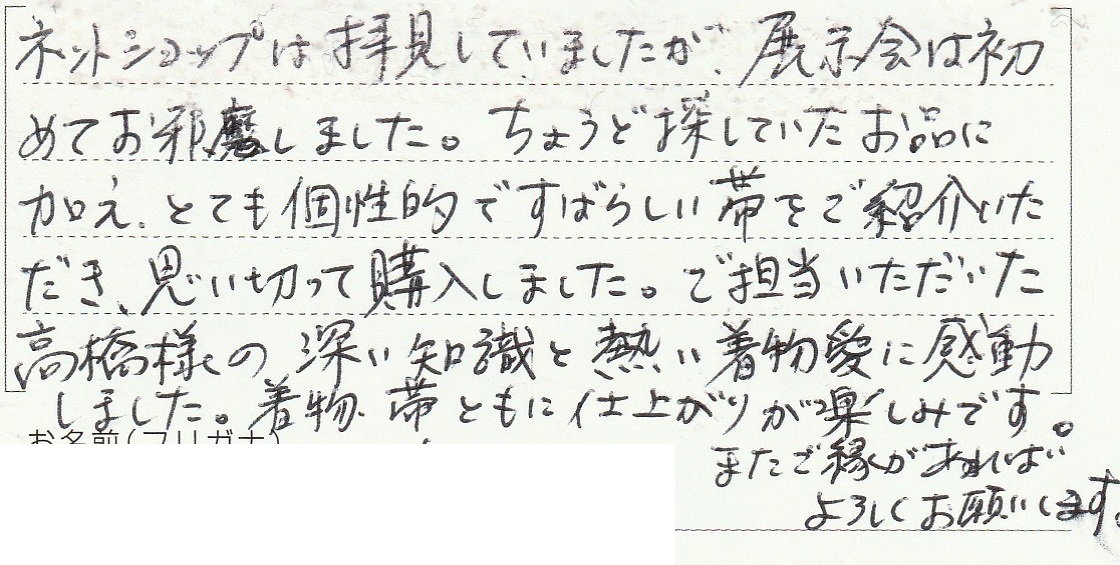 ネットショップは拝見していましたが、展示会は初
めてお邪魔しました。ちょうど探していたお品に
加え、とても個性的ですばらしい帯をご紹介いた
だき、思い切って購入しました。ご担当いただいた
高橋様の深い知識と熱い着物愛に感動
しました。着物、帯ともに仕上がりが楽しみです。
お名前(フリガナ)
またご縁があれば
よろしくお願いします。